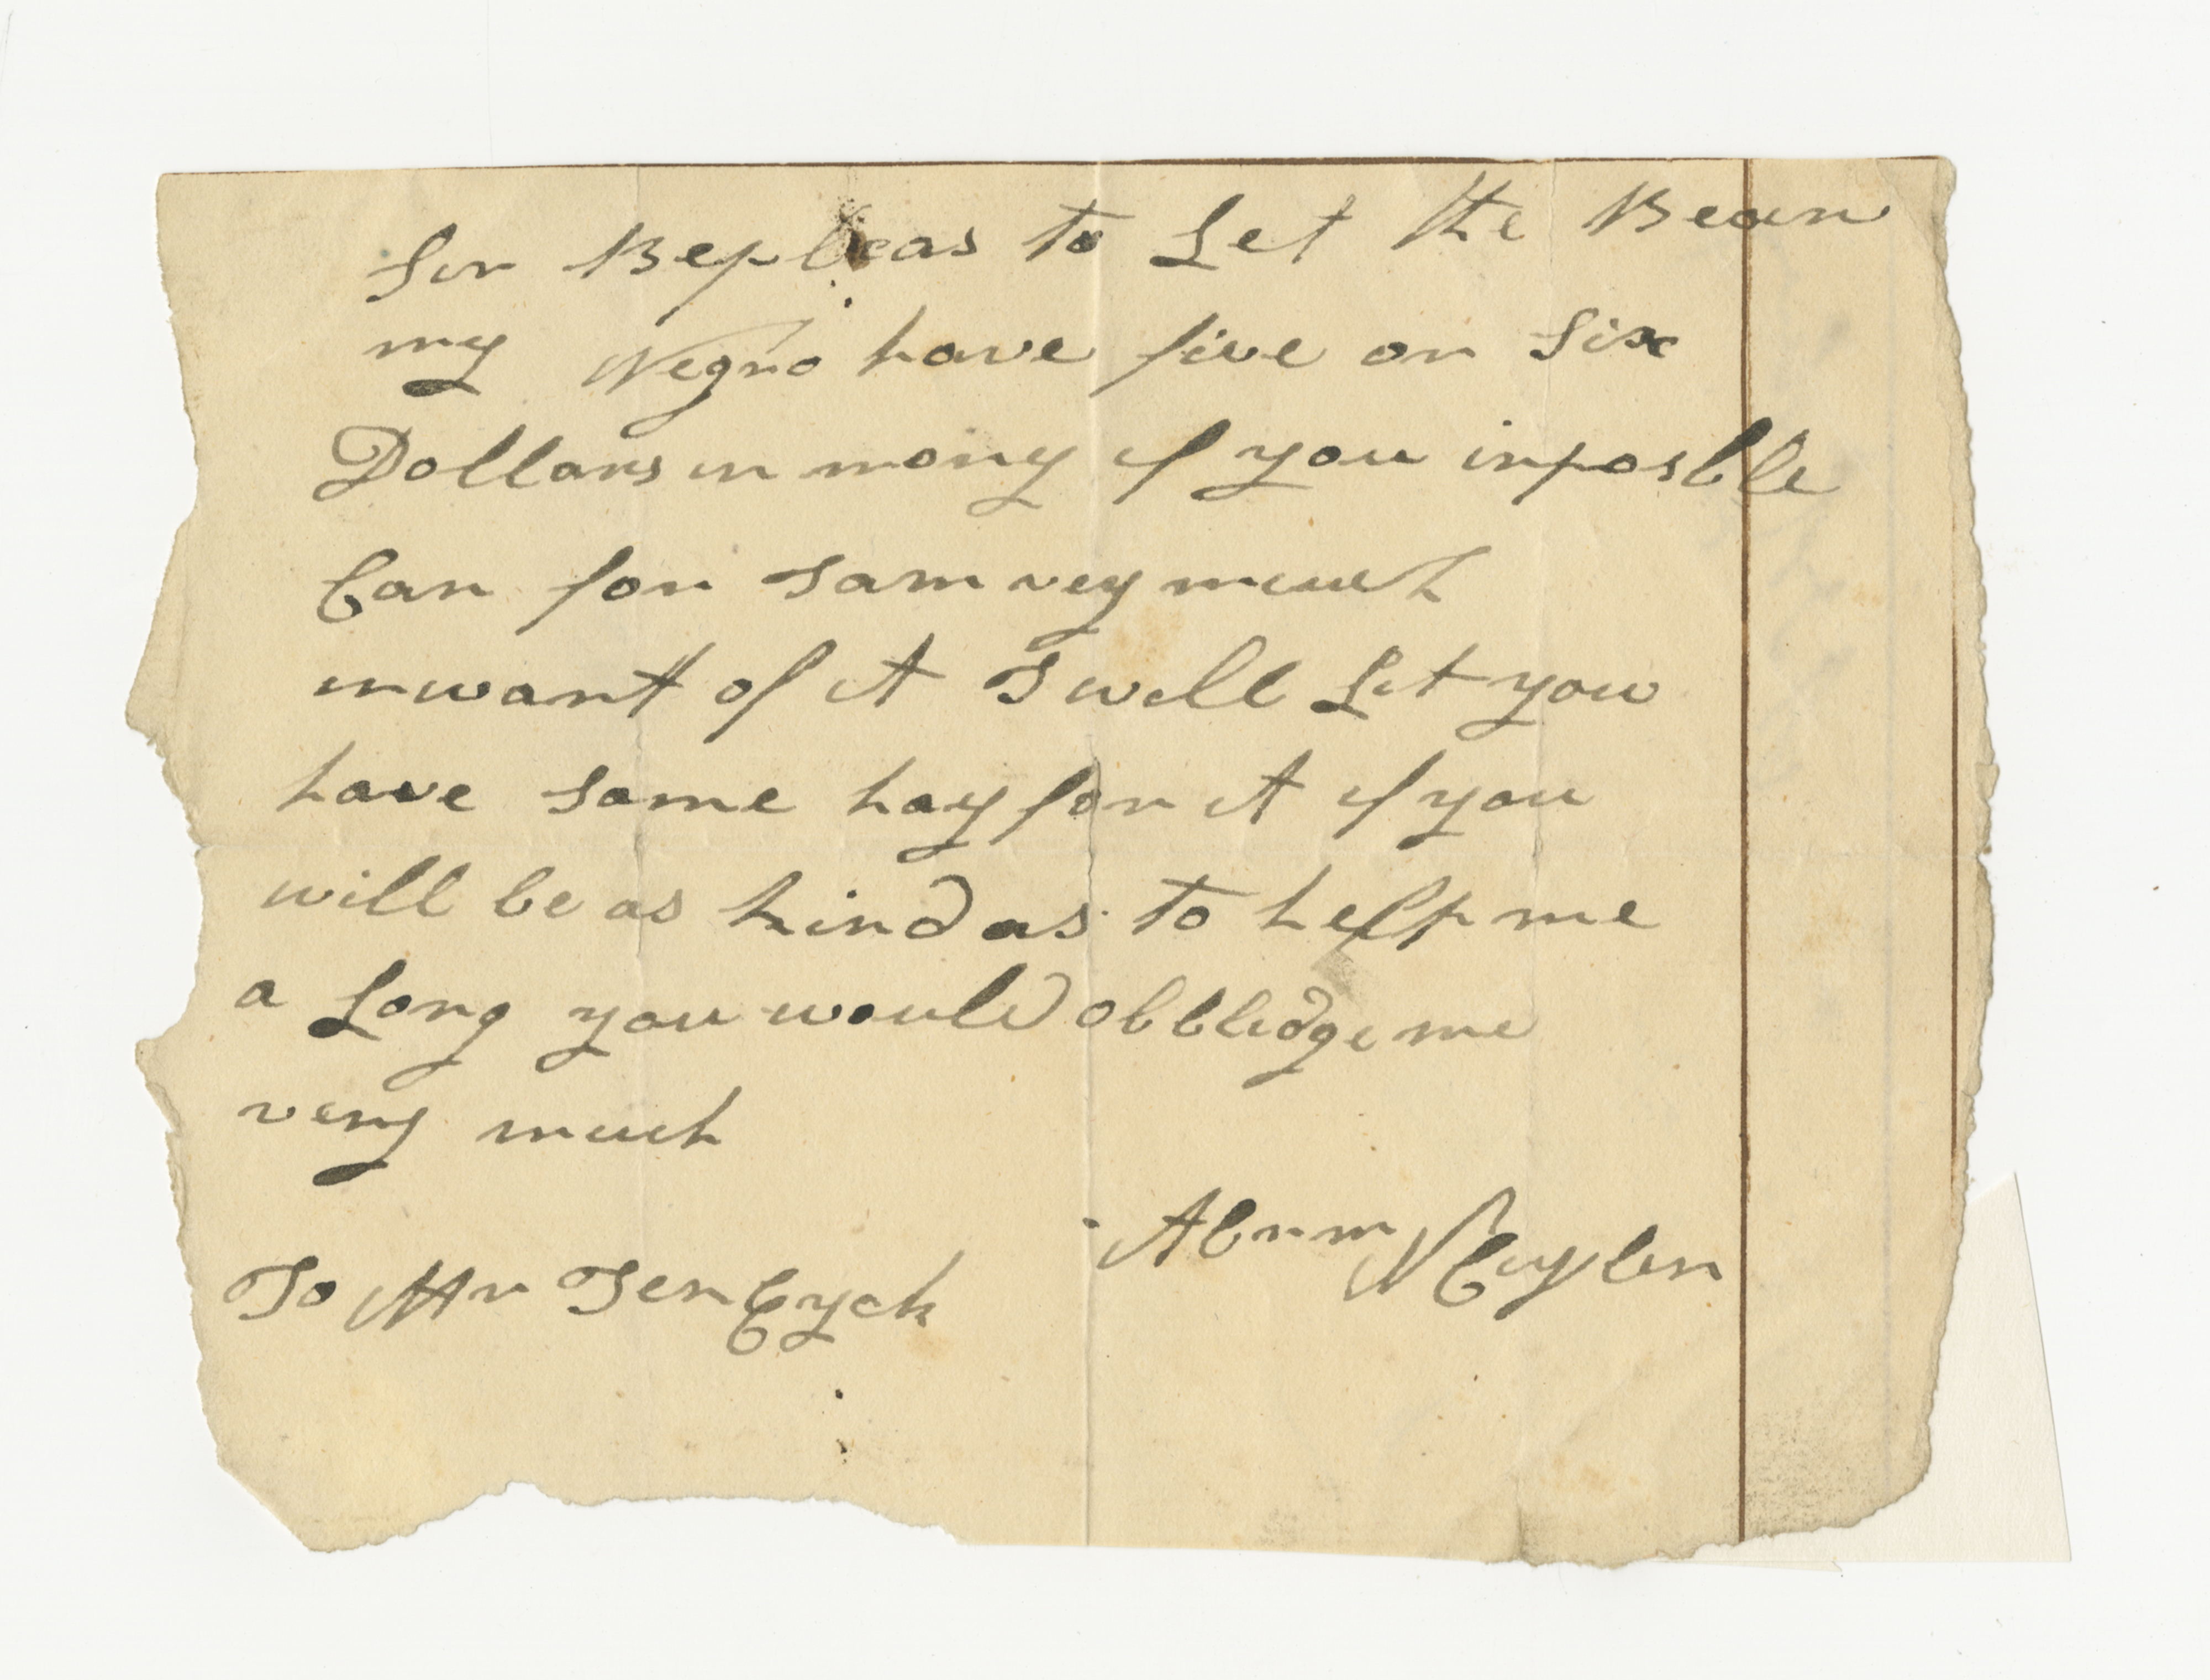 Sir Bepleas to Let the Bearr
my Negro have five or Six
Dollars in mony if you inposble
Can for Iam vey much
inwant of it I will Let you
have some hay for it if you
will be as kind as to help me
a Long you would obbledge me
very much
Abrm N Cuyler
To Mr Ten Eyck